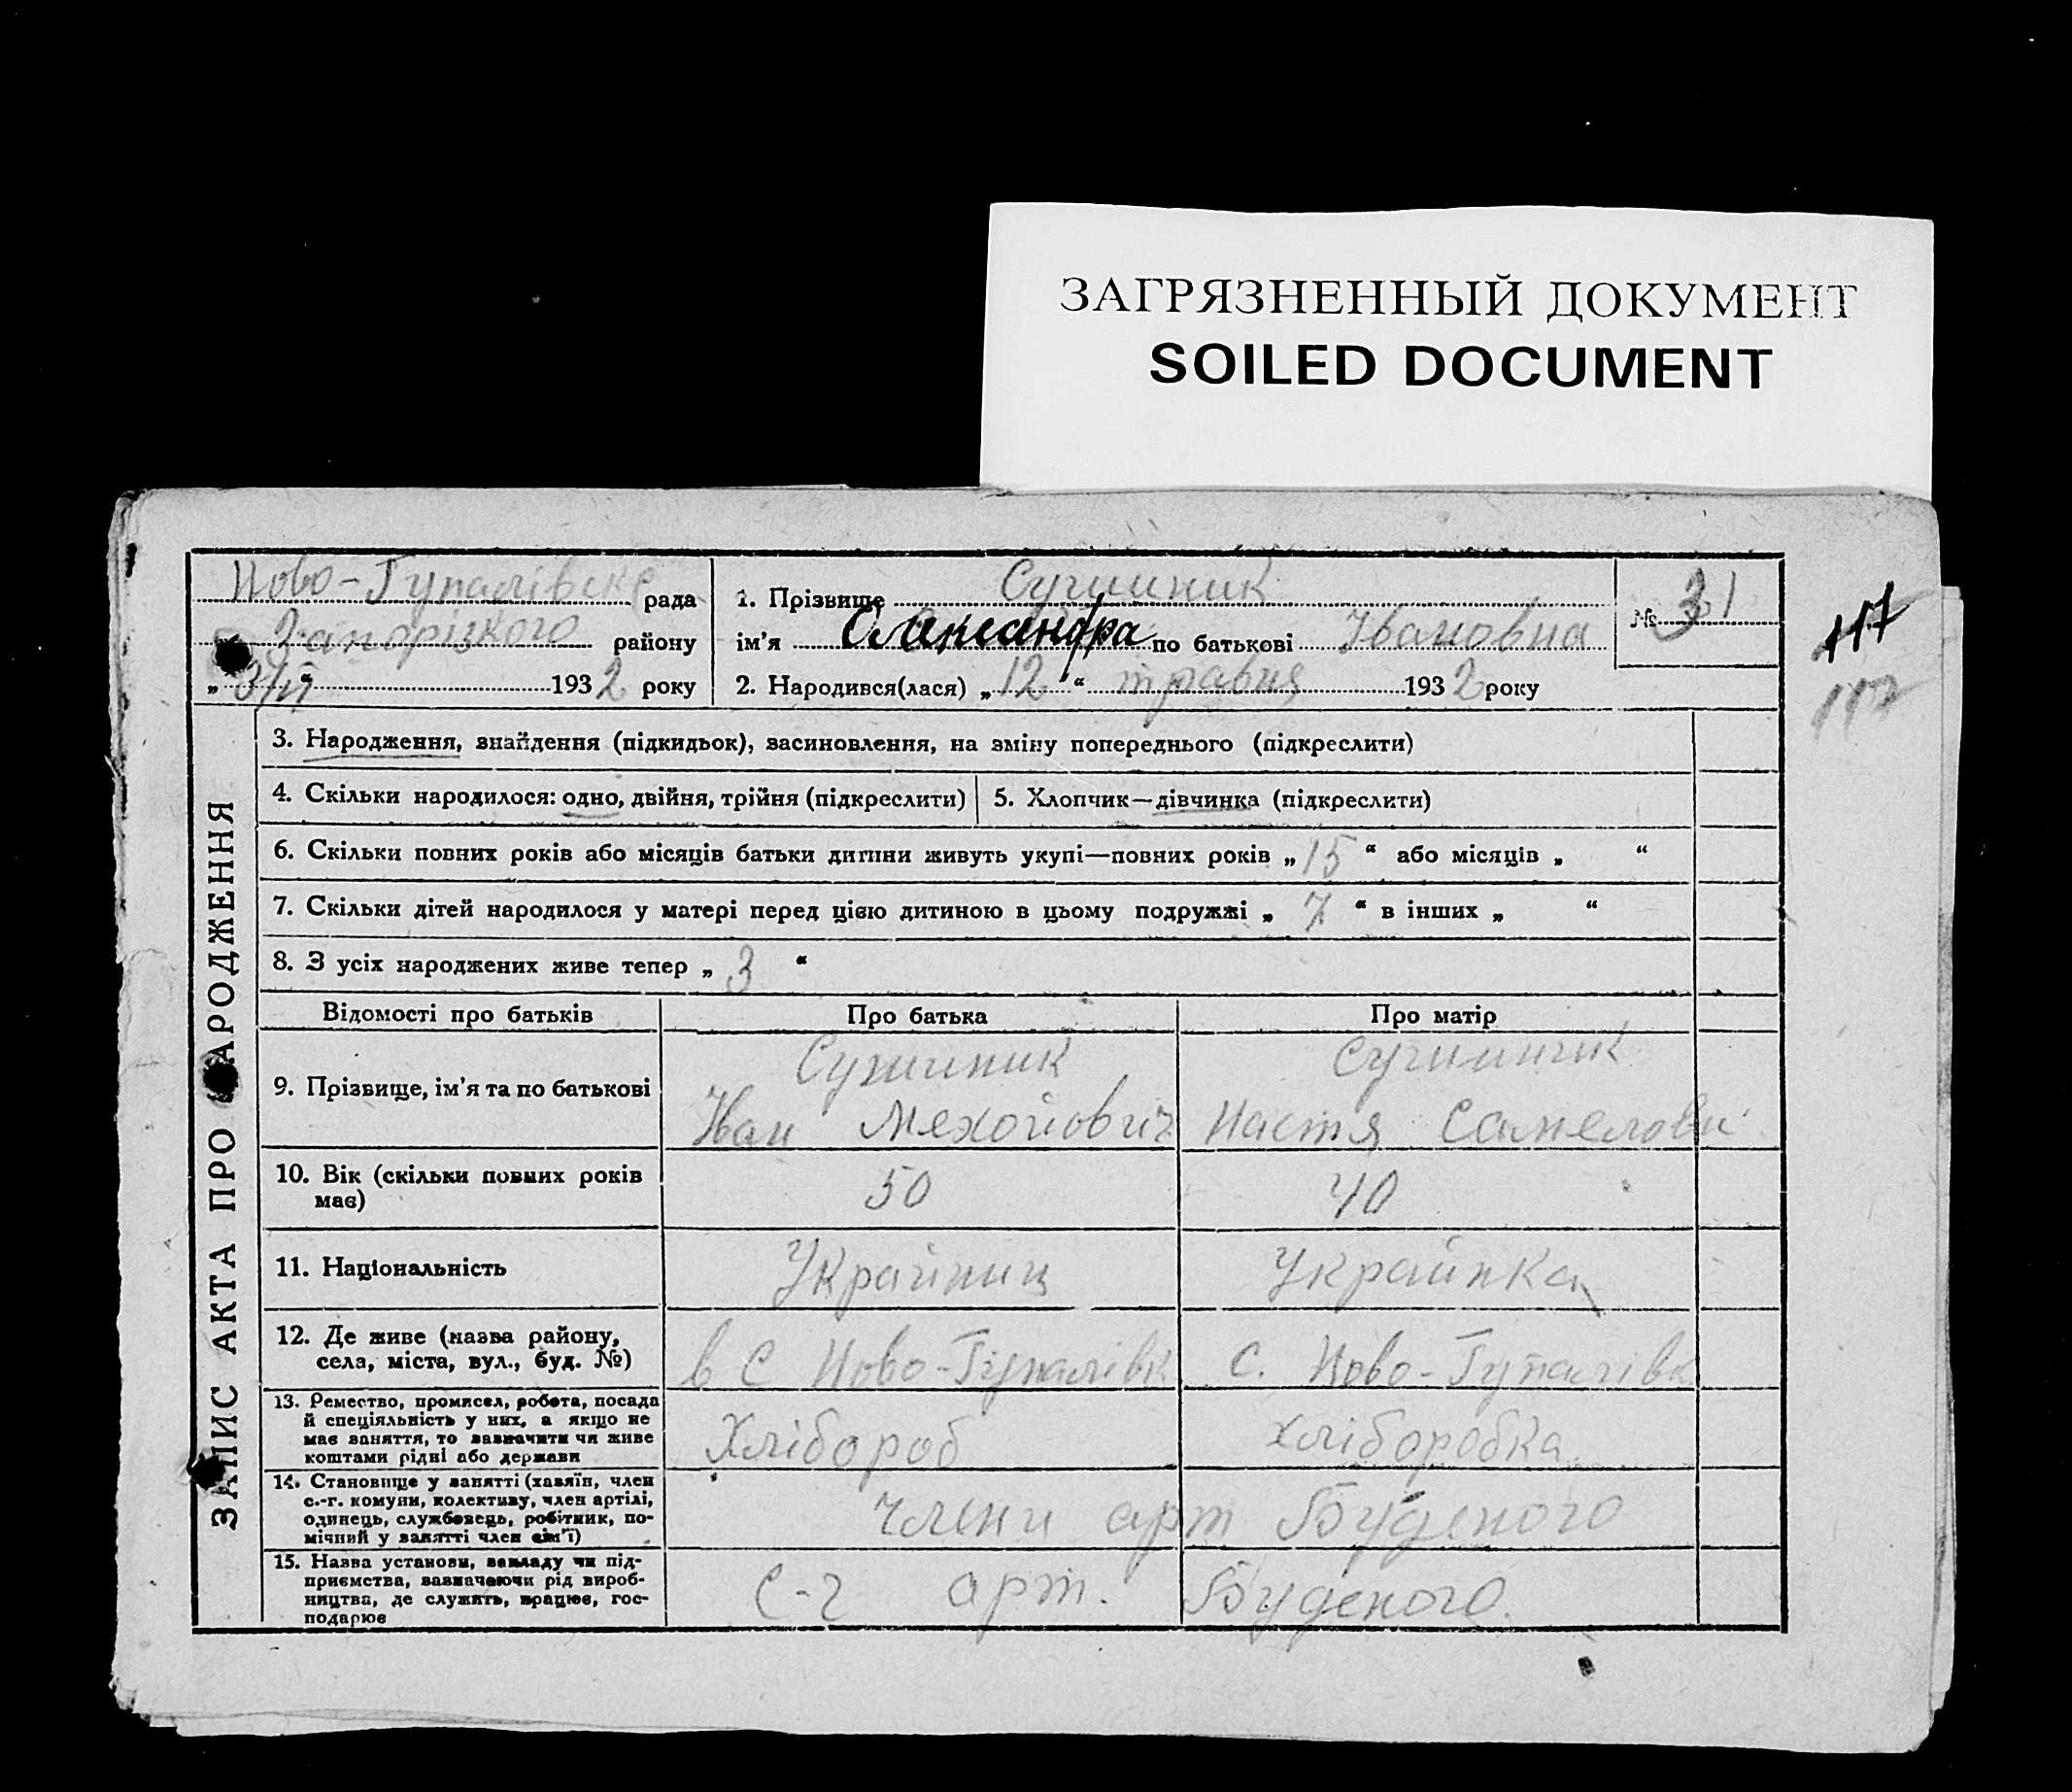 ЗАГРЯЗНЕННЫЙ ДОКУМЕНТ
SOILED DOCUMENT
Ново-Гупалівська рада
Запорізкого району
„ 3/VI “ 1932 року
1. Прізвище
ім'я Олександра по батькові Івановна
2. Народився(лася) „12“ травня 1932 року
№ 31
117
117
ЗАПИС АКТА ПРО НАРОДЖЕННЯ
3. Народження, знайдення (підкидьок), засиновлення, на зміну попереднього (підкреслити)
4. Скільки народилося: одно, двійня, трійня (підкреслити)
5. Хлопчик—дівчинка (підкреслити)
6. Скільки повних років або місяців батьки дитини живуть укупі—повних років „ 15 “ або місяців „ “
7. Скільки дітей народилося у матері перед цією дитиною в цьому подружжі „ 7 “ в інших „ “
8. З усіх народжених живе тепер „ 3 “
Відомості про батьків
Про батька
Про матір
9. Прізвище, ім'я та по батькові
Іван
Настя
10. Вік (скільки повних років
має)
50
40
11. Національність
Україниц
Українка
12. Де живе (назва району,
села, міста, вул., буд. №)
в С Ново-Гупалівк
с. Ново-Гупалівк
13. Ремество, промисел, робота, посада
й спеціяльність у них, а якщо не
має заняття, то зазначити чи живе
коштами рідні або держави
Хлібороб
хліборобка
14. Становище у занятті (хазяїн, член
с.-г. комуни, колективу, член артілі,
одинець, службовець, робітник, по-
мічний у занятті член сім'ї)
члени арт Буденого
15. Назва установи, закладу чи під-
приємства, зазначаючи рід вироб-
ництва, де служить, працює, гос-
подарює
С-г арт. Буденого.